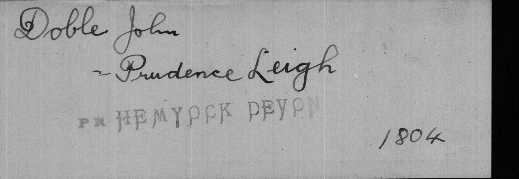 Doble John
= Prudence Leigh
PR HEMYOCK DEVON
1804